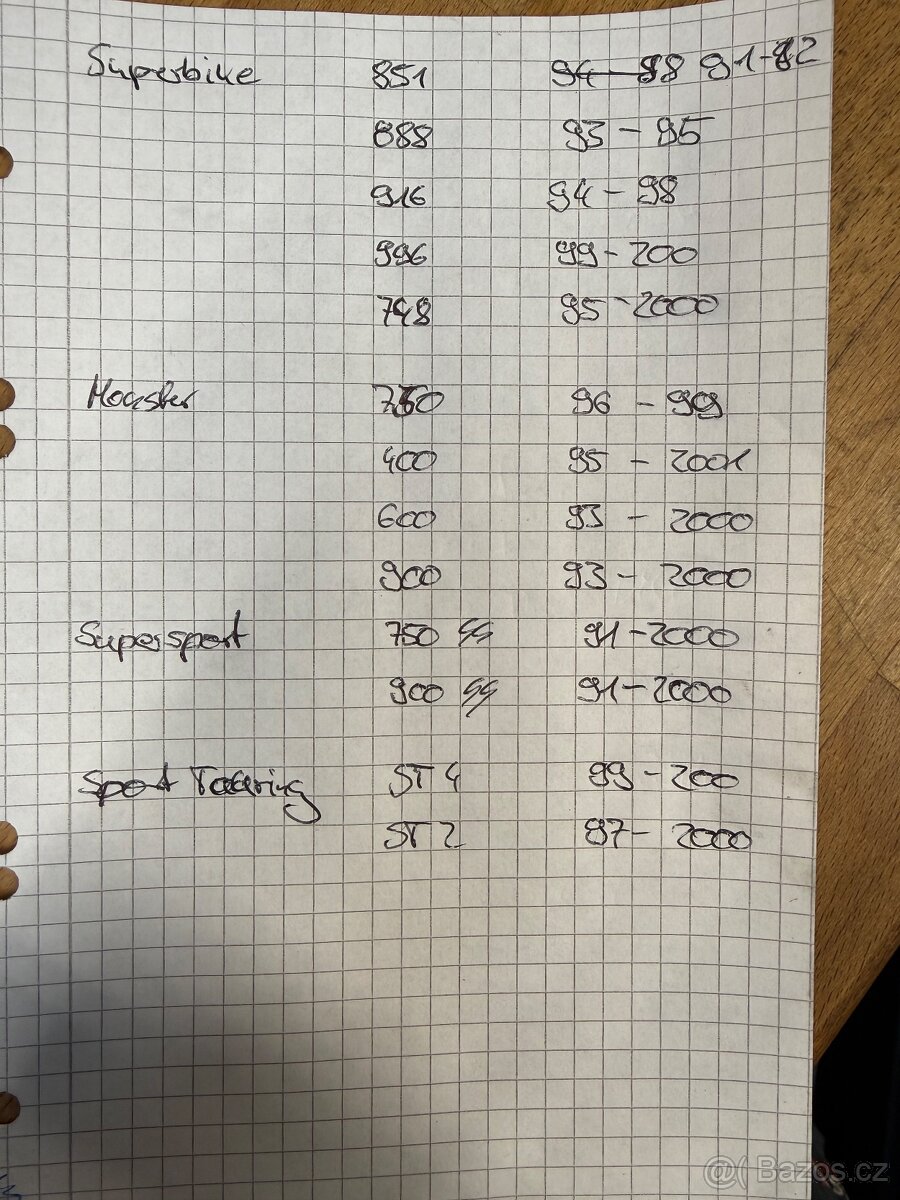 Superbike 851 94-98 91-92
888 93-95
916 94-98
996 99-200
748 95-2000
Monster 750 96-99
400 95-2001
600 93-2000
900 93-2000
Supersport 750 SS 91-2000
900 SS 91-2000
Sport Touring ST4 99-200
ST2 97-2000
@( Bazos.cz